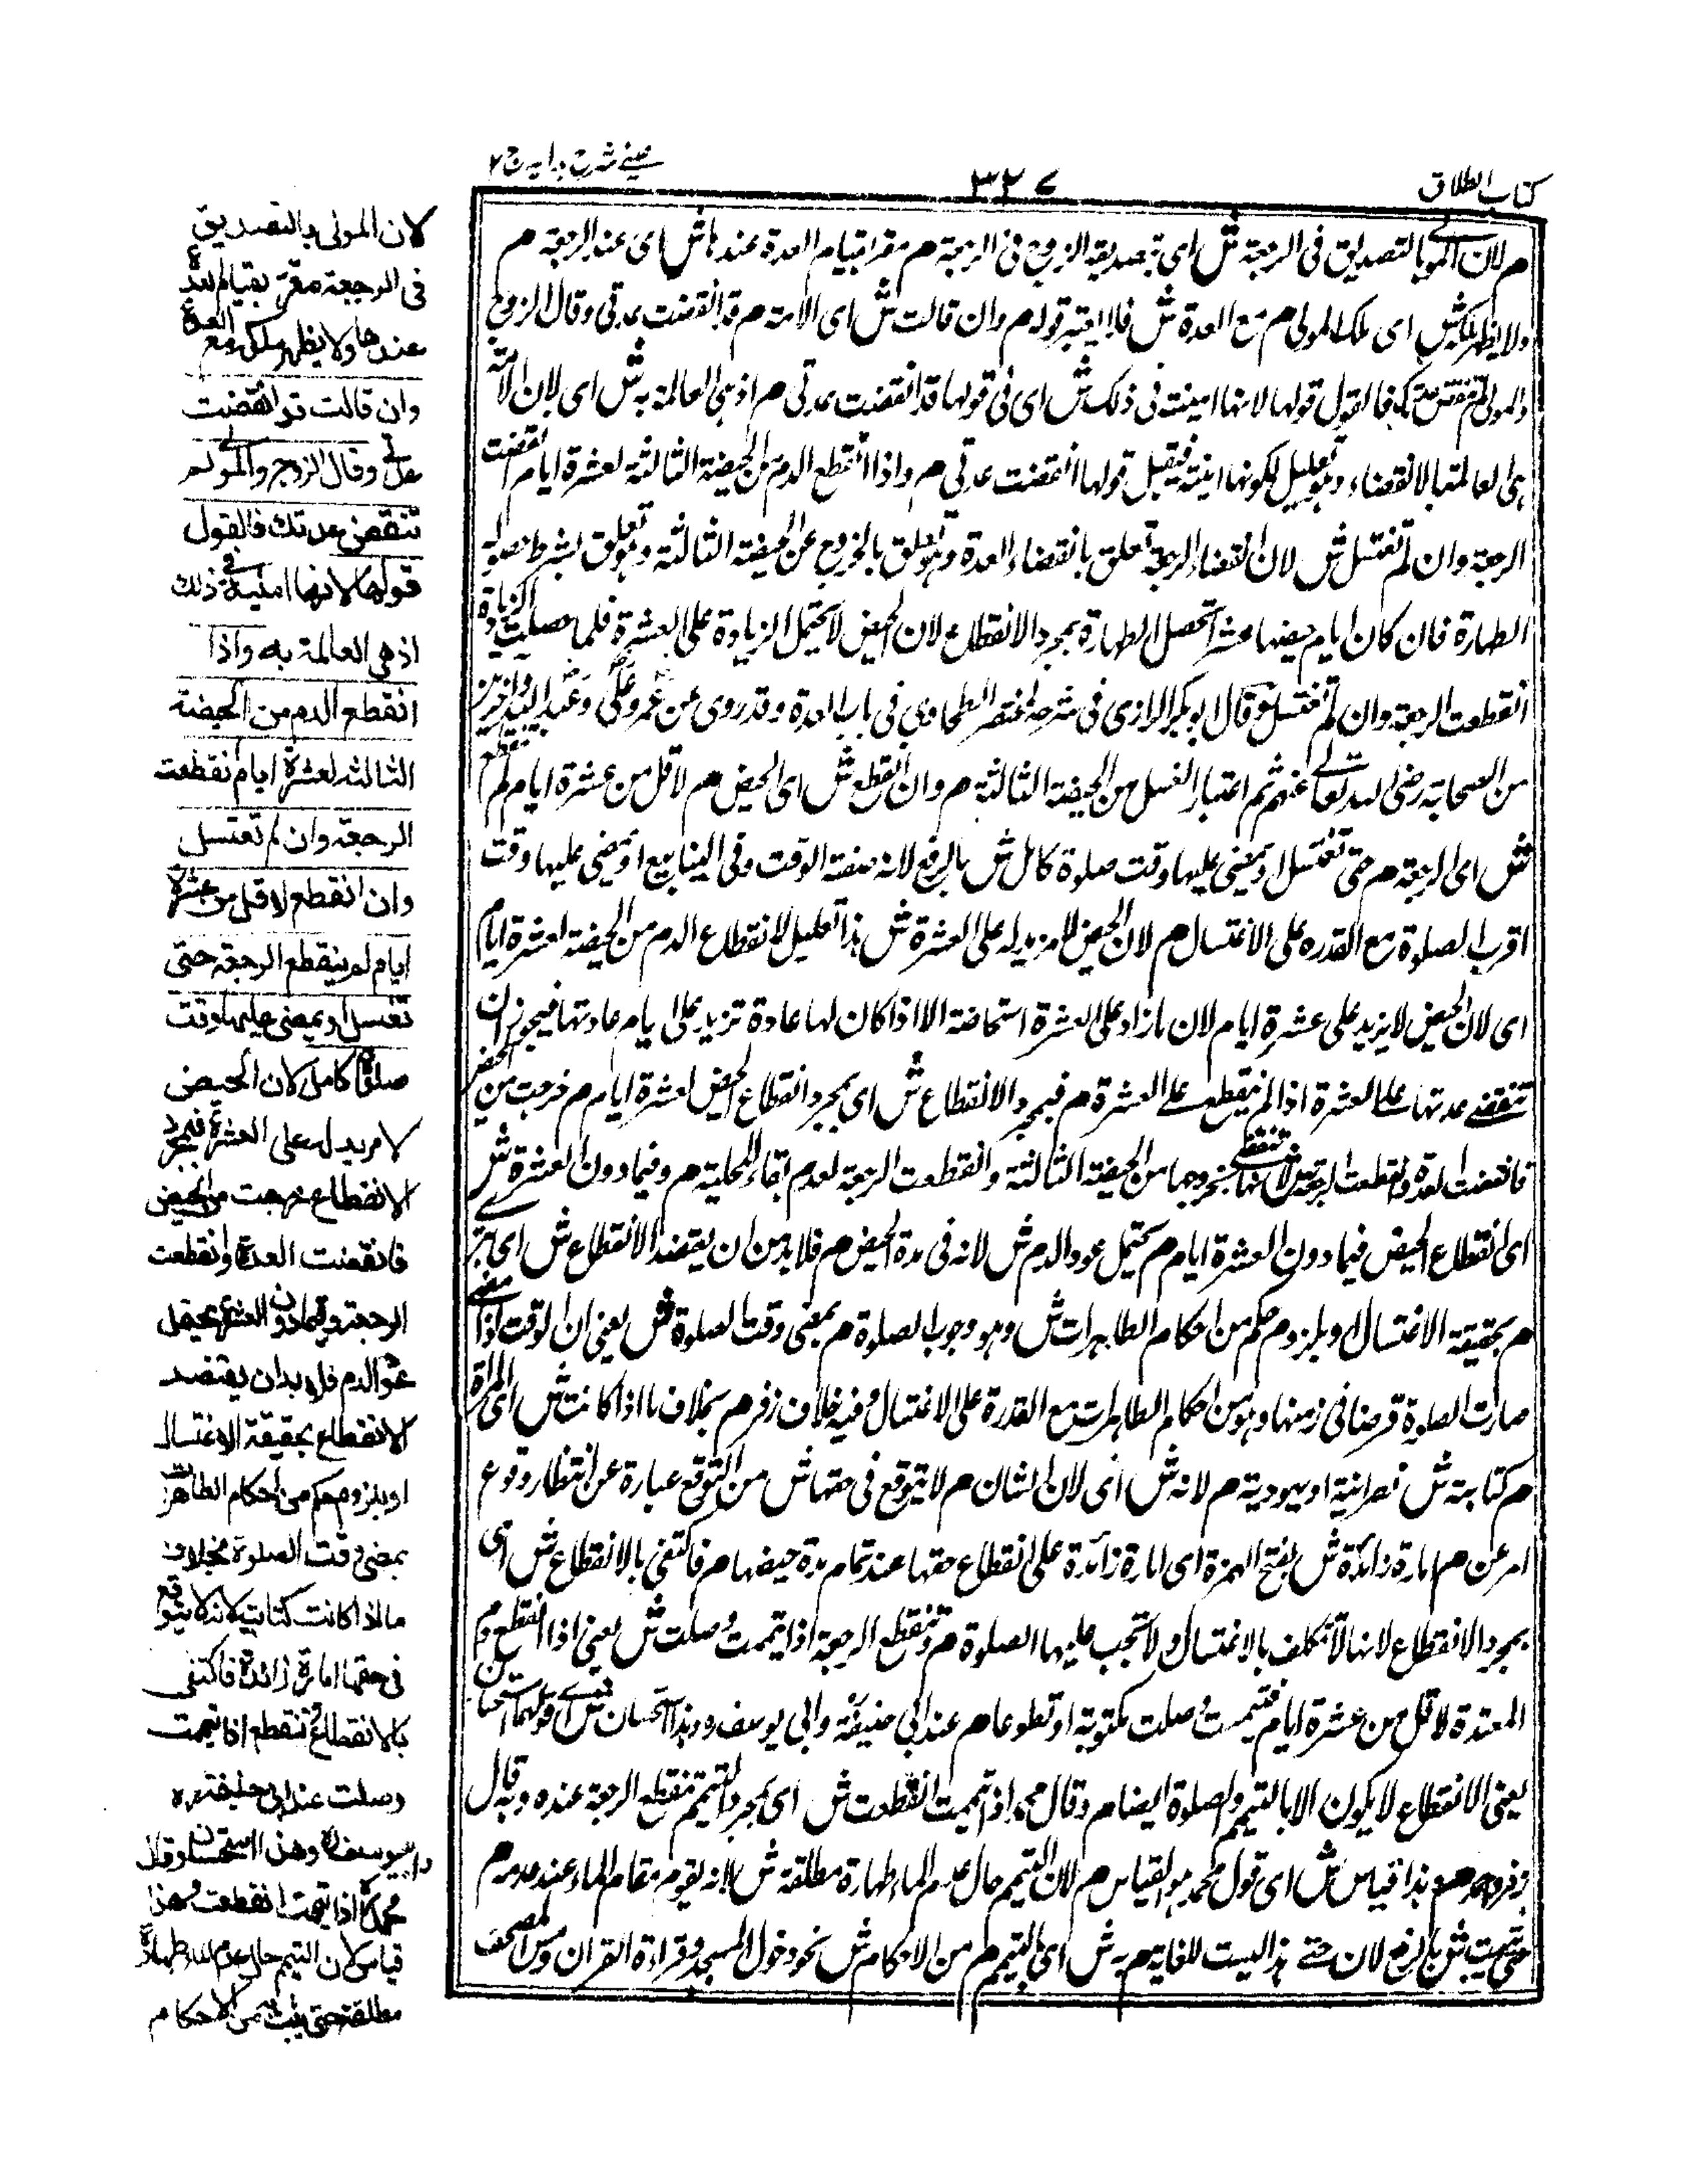 كتاب الطلاق
٣٢٧
عينى شرح هدايه ج ٢
م لان المولى بالتصديق فى الرجعة ش اى بتصديقه الزوج فى الرجعة م مقر بقيام العدة عندها ش اى عند الرجعة م
ولا يظهر ملكه ش اى ملك المولى م مع العدة ش فلا يعتبر قوله م وان قالت ش اى الامة م قد انقضت عدتى وقال الزوج
والمولى لم تنقض عدتك فالقول قولها لانها امينة فى ذلك ش اى فى قولها قد انقضت عدتى م اذ هى العالمة به ش اى لان الامة
هى العالمة بالانقضاء وهو تعليل لكونها امينة فيقبل قولها انقضت عدتى م واذا انقطع الدم من الحيضة الثالثة لعشرة ايام انقضت
الرجعة وان لم تغتسل ش لان انقضاء الرجعة تعلق بانقضاء العدة وهو تعلق بالخروج عن الحيضة الثالثة وهو تعلق بشرط حصول
الطهارة فان كان ايام حيضها عشرا تحصل الطهارة بمجرد الانقطاع لان الحيض لا يحتمل الزيادة على العشرة فلما حصلت
انقطعت الرجعة وان لم تغتسل وقال ابو بكر الرازى فى شرحه لمختصر الطحاوى فى باب العدة وقد روى عن عمر وعلى وعبد الله واخرين
من الصحابة رضى الله تعالى عنهم ثم اعتبار الغسل من الحيضة الثالثة م وان انقطع ش اى الحيض م لاقل من عشرة ايام لم تنقطع
ش اى الرجعة م حتى تغتسل او يمضى عليها وقت صلوة كامل ش بالرفع لانه صفة الوقت وفى الينابيع او يمضى عليها وقت
اقرب الصلوة مع القدره على الاغتسال م لان الحيض لا مزيد له على العشرة ش هذا تعليل لانقطاع الدم من الحيضة لعشرة ايام
اى لان الحيض لا يزيد على عشرة ايام لان ما زاد على العشرة استحاضة الا اذا كان لها عادة تزيد على ايام عادتها فيجوز ان
تنقضى عدتها على العشرة اذا لم ينقطع على العشرة م فبمجرد الانقطاع ش اى بمجرد انقطاع الحيض لعشرة ايام م خرجت من الحيض
فانقضت العدة وانقطعت الرجعة ش لانها تنقضى بخروجها من الحيضة الثالثة وانقطعت الرجعة لعدم بقاء المحلية م وفيما دون العشرة ش
اى انقطاع الحيض فيما دون العشرة ايام م يحتمل عود الدم ش لانه فى مدة الحيض م فلا بد من ان يعتضد الانقطاع ش اى
م بحقيقة الاغتسال او بلزوم حكم من احكام الطاهرات ش وهو وجوب الصلوة م بمضى وقت الصلوة ش يعنى ان الوقت اذا مضى
صارت الصلوة قرضا فى زمنها وهو من احكام الطاهرات مع القدرة على الاغتسال وفيه خلاف زفر م بخلاف ما اذا كانت ش اى المراة
م كتابية ش نصرانية او يهودية م لانه ش اى لان الشان م لا يتوقع فى حقها ش من التوقع عبارة عن انتظار وقوع
امر عن م امارة زائدة ش بفتح الهمزة اى امارة زائدة على انقطاع حقها عند تمام مدة حيضها م فاكتفى بالانقطاع ش اى
بمجرد الانقطاع لانها لا تكلف بالاغتسال ولا تجب عليها الصلوة م وتنقطع الرجعة اذا تيممت وصلت ش يعنى اذا انقطع دم
المعتدة لاقل من عشرة ايام فتيممت وصلت مكتوبة او تطوعا م عند ابى حنيفة وابى يوسف رح وهذا استحسان ش اى قولهما استحسان
يعنى الانقطاع لا يكون الا بالتيمم والصلوة ايضا م وقال محمد اذا تيممت انقطعت ش اى بمجرد التيمم تنقطع الرجعة عنده وبه قال
زفر م وهذا قياس ش اى قول محمد هو القياس م لان التيمم حال عدم الماء طهارة مطلقة ش لانه يقوم مقام الماء عند عدمه م
حتى يثبت ش بالرفع لان حتى هذا ليست للغاية م به ش اى بالتيمم م من الاحكام ش نحو دخول المسجد وقراءة القران ومس المصحف
لان المولى بالتصديق
فى الرجعة مقر بقيام العدة
عندها ولا يظهر ملكه مع العدة
وان قالت قد انقضت
عدتى وقال الزوج والمولى لم
تنقض عدتك فالقول
قولها لانها امينة فى ذلك
اذ هى العالمة به واذا
انقطع الدم من الحيضة
الثالثه لعشرة ايام انقطعت
الرجعة وان لم تغتسل
وان انقطع لاقل من عشرة
ايام لم ينقطع الرجعة حتى
تغتسل او يمضى عليها وقت
صلوة كامل لان الحيض
لا مزيد له على العشرة فبمجرد
الانقطاع خرجت من الحيض
فانقضت العدة وانقطعت
الرجعة وفيما دون العشرة يحتمل
عود الدم فلا بد ان يعتضد
الانقطاع بحقيقة الاغتسال
او بلزوم حكم من احكام الطاهرات
بمضى وقت الصلوة بخلاف
ما اذا كانت كتابية لانه لا يتوقع
فى حقها امارة زائدة فاكتفى
بالانقطاع وتنقطع اذا تيممت
وصلت عند ابى حنيفة ره
وابى يوسف ره وهذا استحسان وقال
محمد اذا تيممت انقطعت وهذا
قياس لان التيمم حال عدم الماء طهارة
مطلقة حتى يثبت به من الاحكام